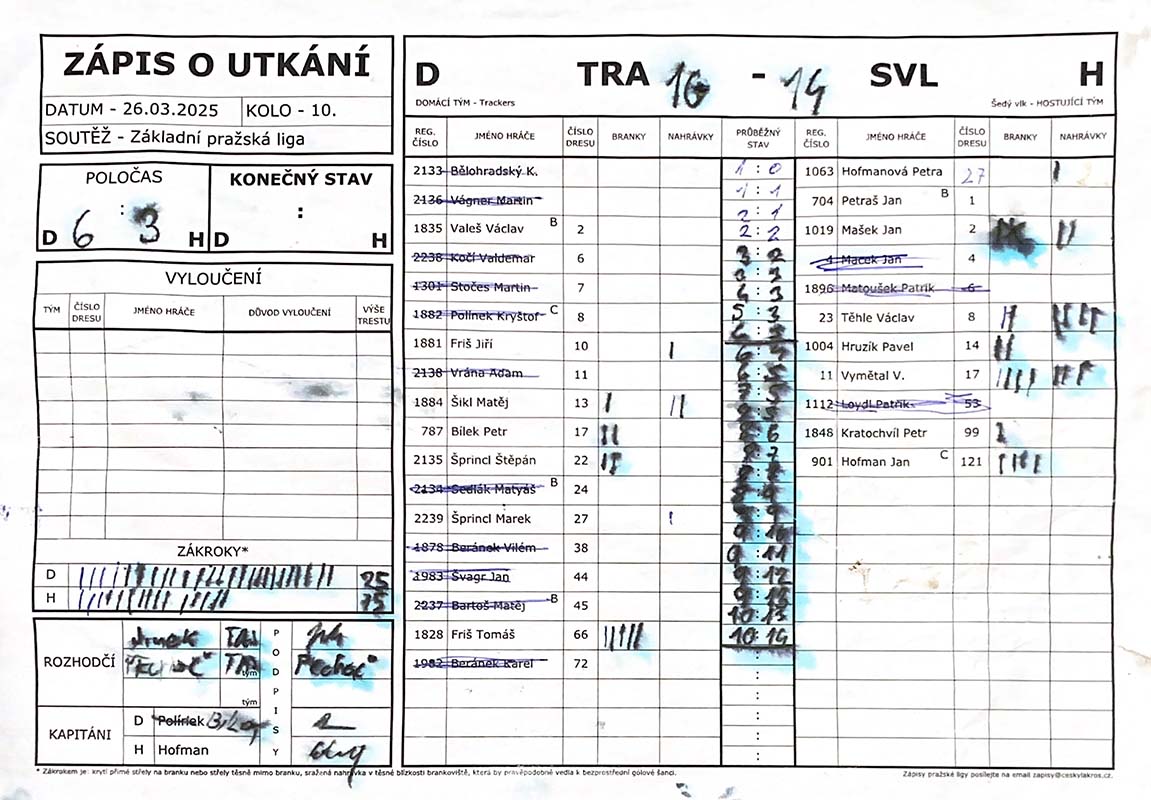 ZÁPIS O UTKÁNÍ
DATUM - 26.03.2025 KOLO - 10.
SOUTĚŽ - Základní pražská liga
POLOČAS
D 6 : 3 H
KONEČNÝ STAV
D : H
VYLOUČENÍ
TÝM ČÍSLO DRESU JMÉNO HRÁČE DŮVOD VYLOUČENÍ VÝŠE TRESTU
ZÁKROKY*
D 25
H 15
ROZHODČÍ
tým
Pechač
tým
PODPISY
KAPITÁNI
D Polínek
H Hofman
D TRA 10 - 14 SVL H
DOMÁCÍ TÝM - Trackers Šedý vlk - HOSTUJÍCÍ TÝM
REG. ČÍSLO JMÉNO HRÁČE ČÍSLO DRESU BRANKY NAHRÁVKY PRŮBĚŽNÝ STAV REG. ČÍSLO JMÉNO HRÁČE ČÍSLO DRESU BRANKY NAHRÁVKY
2133 Bělohradský K.
2136 Vágner Martin
1835 Valeš Václav B 2
2238 Kočí Valdemar 6
1301 Stočes Martin 7
1882 Polínek Kryštof C 8
1881 Friš Jiří 10
2138 Vrána Adam 11
1884 Šikl Matěj 13
787 Bílek Petr 17
2135 Šprincl Štěpán 22
2134 Sedlák Matyáš B 24
2239 Šprincl Marek 27
1878 Beránek Vilém 38
1983 Švagr Jan 44
2237 Bartoš Matěj B 45
1828 Friš Tomáš 66
1982 Beránek Karel 72
1 : 0
1 : 1
2 : 1
2 : 2
3 : 2
5 : 3
6 : 3
9 : 10
9 : 11
9 : 12
10 : 13
10 : 14
1063 Hofmanová Petra 27
704 Petraš Jan B 1
1019 Mašek Jan 2
4 Macek Jan 4
1896 Matoušek Patrik 6
23 Těhle Václav 8
1004 Hruzík Pavel 14
11 Vymětal V. 17
1112 Loydl Patrik 53
1848 Kratochvíl Petr 99
901 Hofman Jan C 121
* Zákrokem je: krytí přímé střely na branku nebo střely těsně mimo branku, sražená nahrávka v těsné blízkosti brankoviště, která by pravděpodobně vedla k bezprostřední gólové šanci.
Zápisy pražské ligy posílejte na email zapisy@ceskylakros.cz.